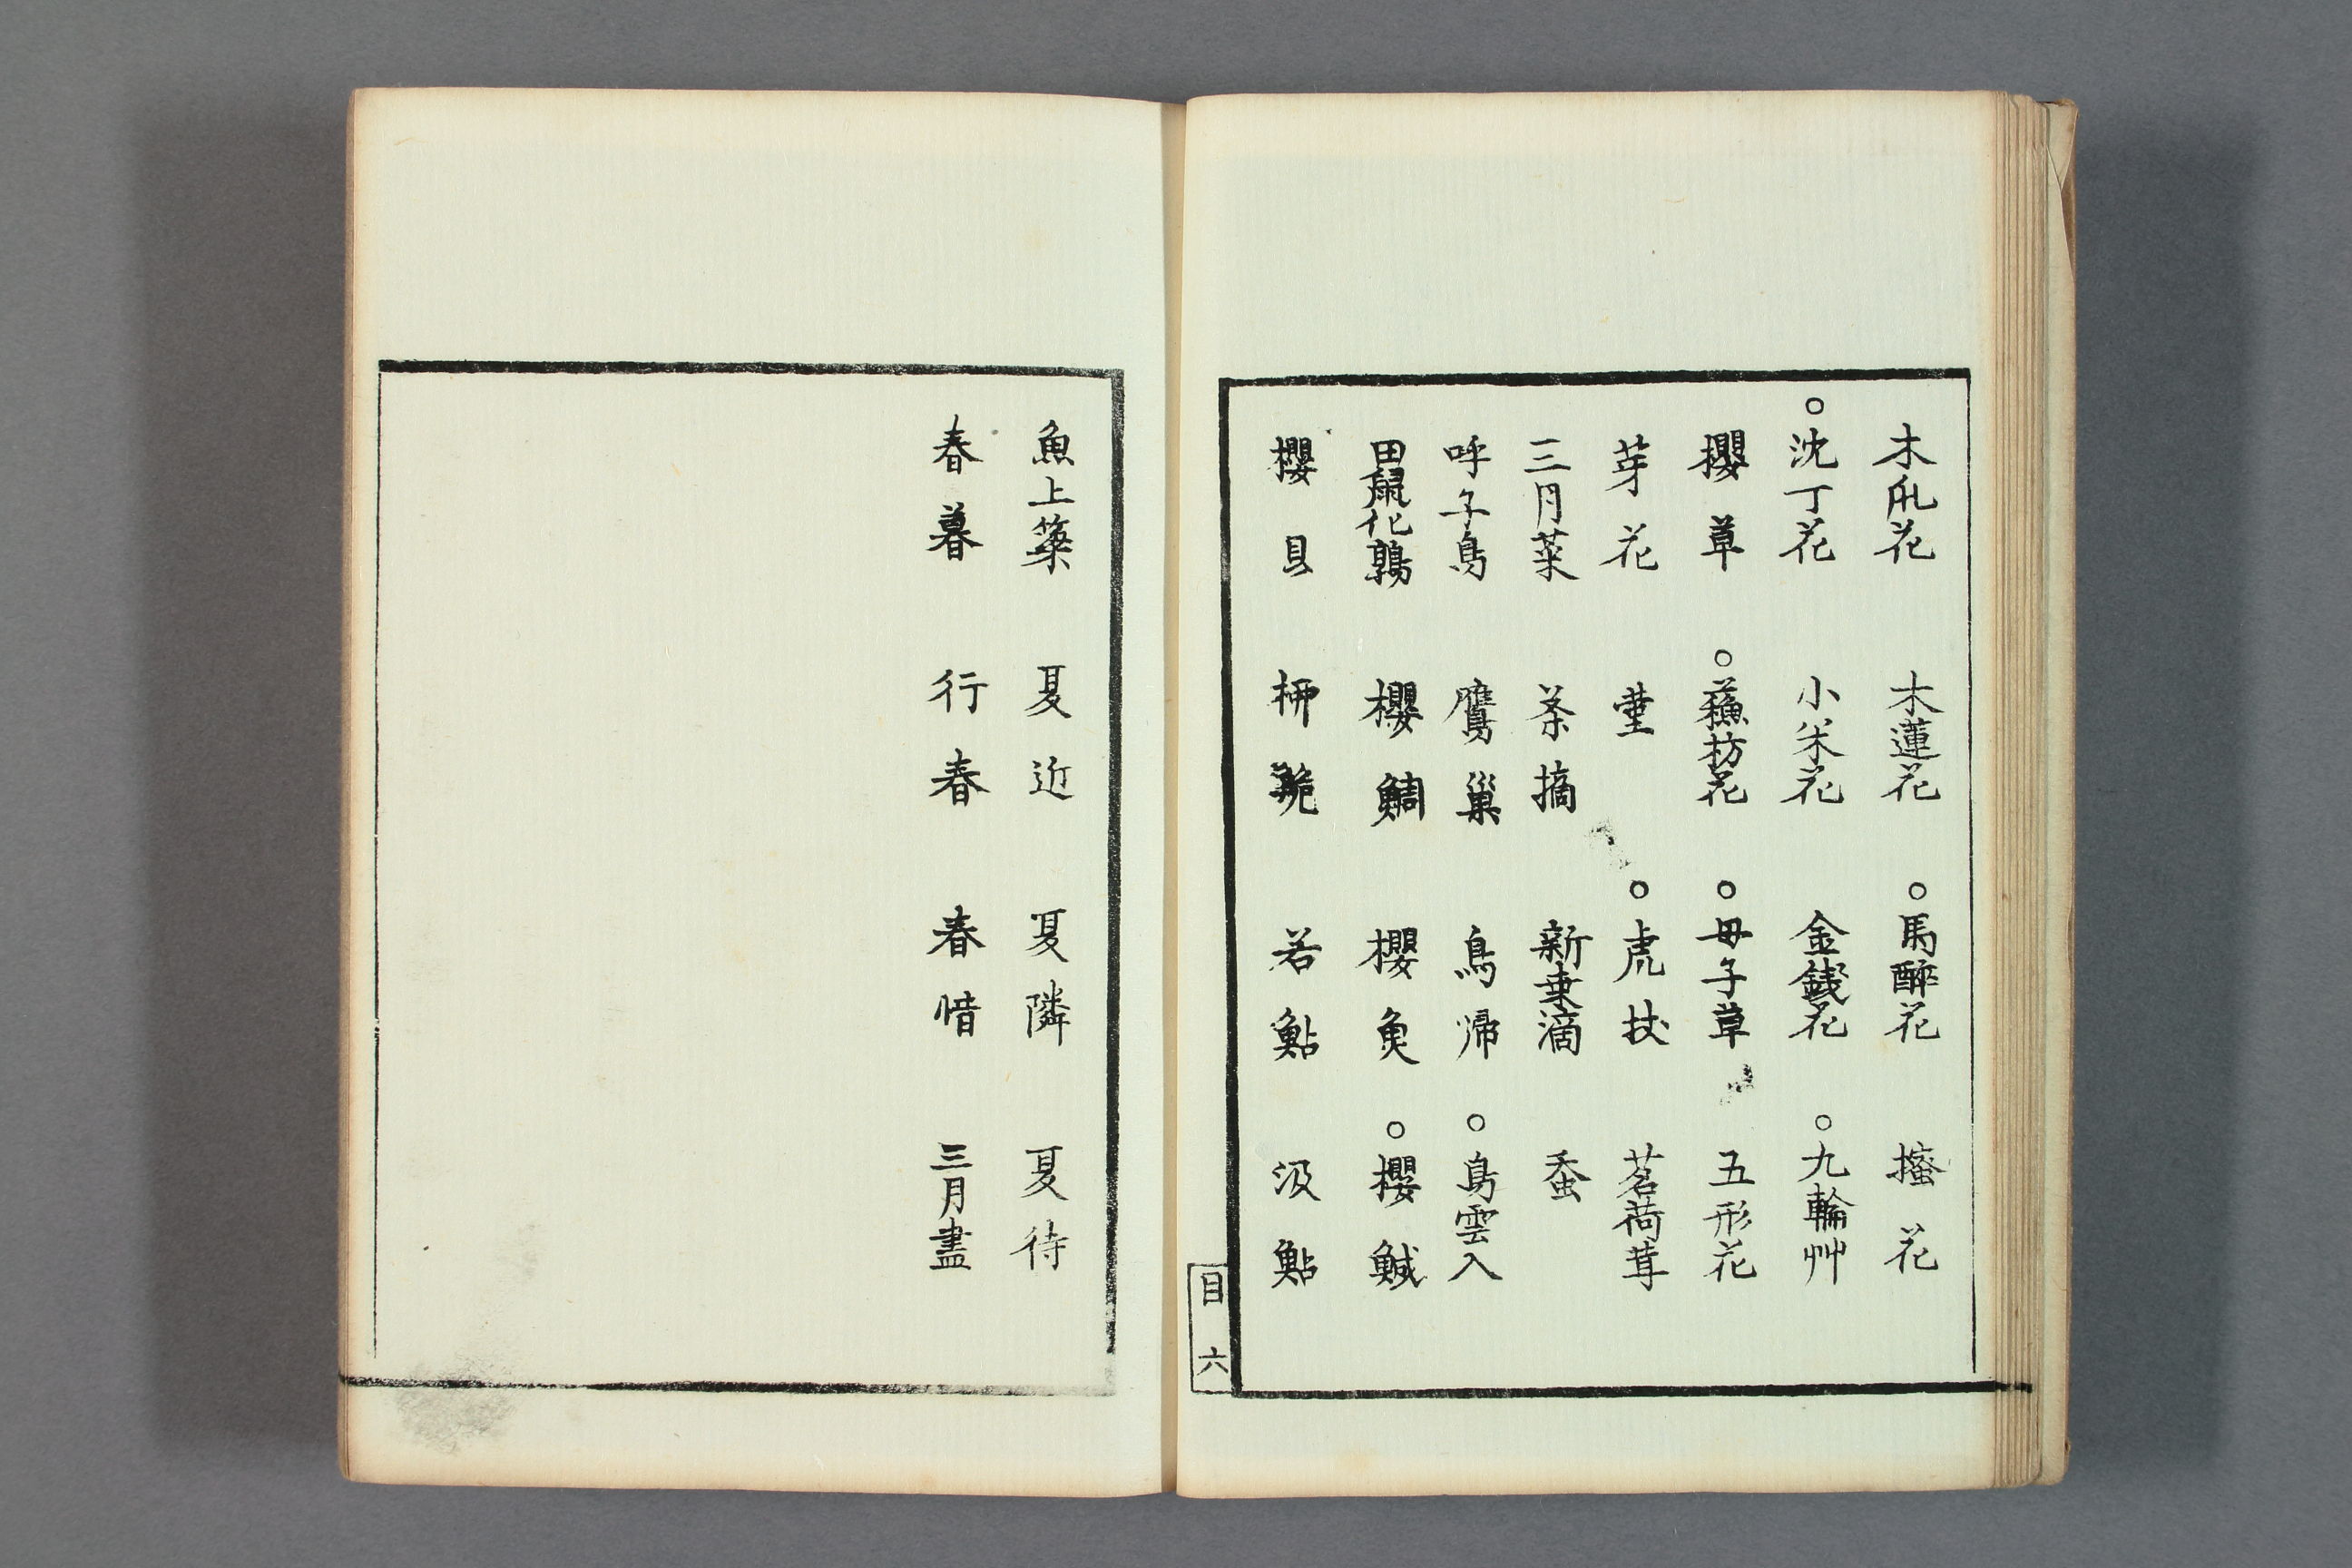 木瓜花 木蓮花 ○馬醉花 搔花
○沈丁花 小米花 金錢花 ○九輪艸
櫻草 ○蘓枋花 ○母子草 五形花
芽花 菫 ○虎杖 茗荷茸
三月菜 茶摘 新桑滴 蚕
呼子鳥 鷹巢 鳥帰 ○鳥雲入
田鼠化鶉 櫻鯛 櫻魚 ○櫻鰔
櫻貝 柳鮠 若鮎 汲鮎
目六
魚上簗 夏近 夏隣 夏待
春暮 行春 春惜 三月盡